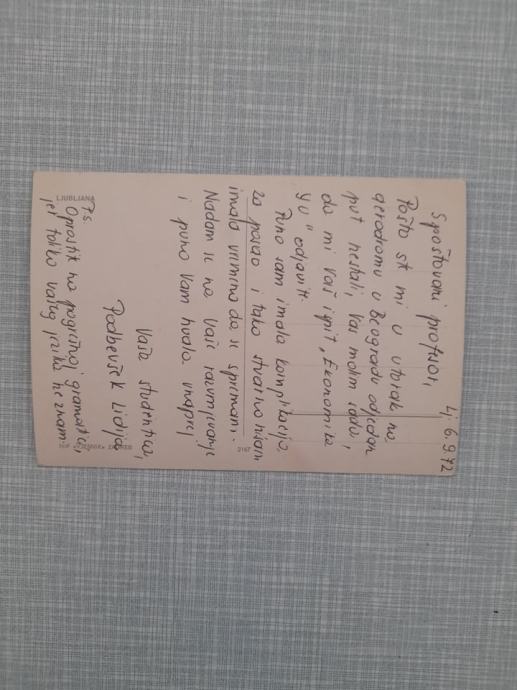 Lj 6.9.72
Spoštovani profesor,
Pošto ste mi u utorak na
aerodromu u Beogradu odjedan
put nestali, Vas molim ,
da mi Vaš ispit „Ekonomika
YU" odjavite.
Puno sam imala komplikacija
za posao i tako stvarno nisam
imala vrimena da se spreman.
Nadam se na Vaše razumevanje
i puno Vam hvala unapred
Vaša studentka,
Podbevšek Lidija
LJUBLJANA
Ps.
Oprostite na pogrešnoj gramatici,
jer toliko vašeg jezika ne znam
ZAGREB
2167